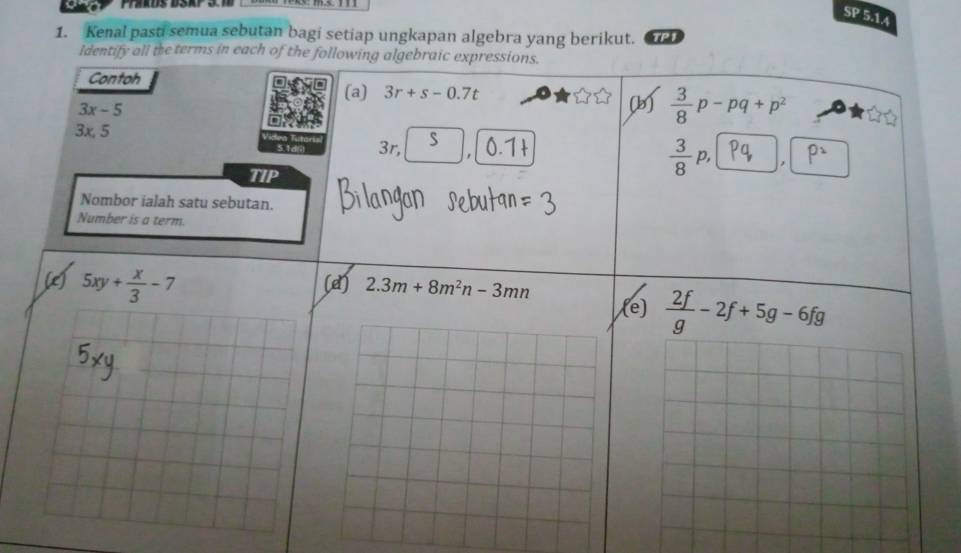 SP 5.1.4
1. Kenal pasti semua sebutan bagi setiap ungkapan algebra yang berikut. TP1
Identify all the terms in each of the following algebraic expressions.
Contoh
3x – 5
3x, 5
Video Tutorial
TIP
Nombor ialah satu sebutan.
Number is a term.
(a) 3r + s – 0.7t
3r, s , 0.7t
Bilangan sebutan = 3
(b) 3/8 p – pq + p²
3/8 p, pq , p²
(c) 5xy + x/3 – 7
5xy
(d) 2.3m + 8m²n – 3mn
(e) 2f/g – 2f + 5g – 6fg